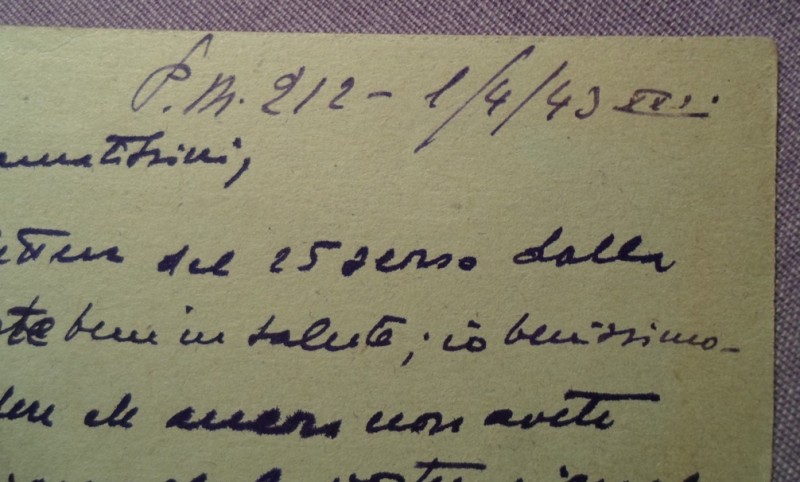 P.M. 212 - 1/4/43 XXI.
amatissimi,
ettera del 25 scorso dalla
ate bene in salute; io benissimo -
dere che ancora non avete